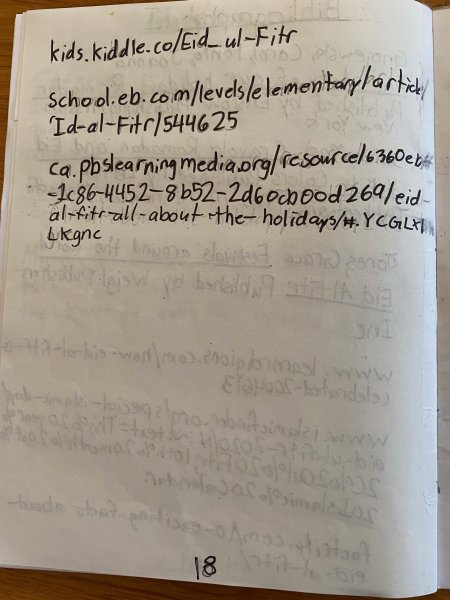 kids.kiddle.co/Eid_ul-Fitr
school.eb.com/levels/elementary/article/
Id-al-Fitr/544625
ca.pbslearningmedia.org/resource/6360eb
-1c86-4452-8b52-2d60cb00d269/eid-
al-fitr-all-about-the-holidays/#.YCGLX
UKgnc
18